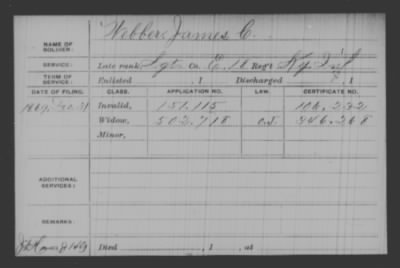 Webber, James C.
NAME OF SOLDIER:
SERVICE: Late rank, Sgt Co. E, 18 Reg't Ky Inf
TERM OF SERVICE: Enlisted , 1 Discharged , 1
DATE OF FILING. CLASS. APPLICATION NO. LAW. CERTIFICATE NO.
Invalid, 151,115 106,232
Widow, 502,718 346,268
Minor,
ADDITIONAL SERVICES:
REMARKS:
Died , 1 , at